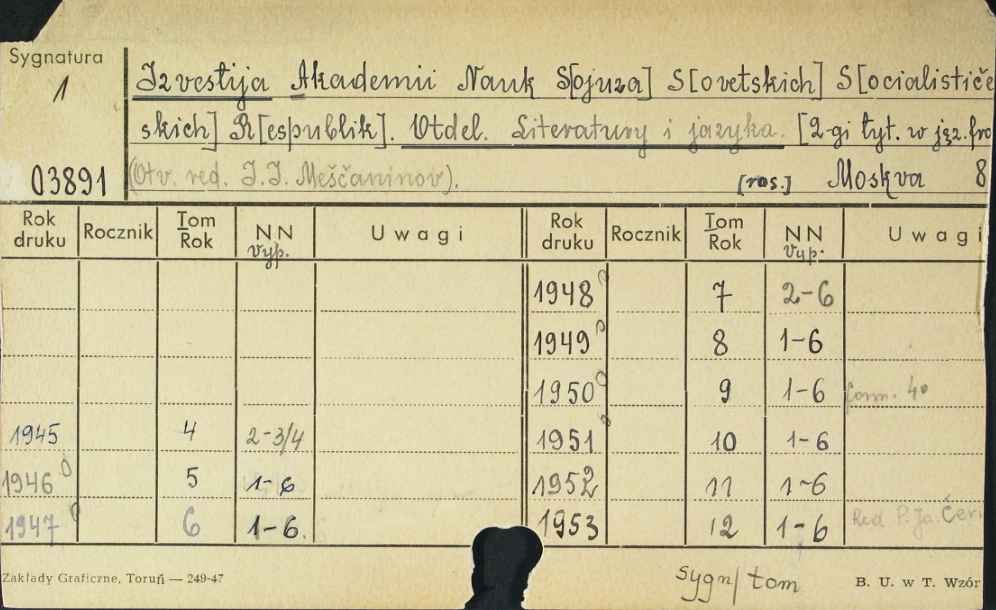 Sygnatura
1
03891
Izvestija Akademii Nauk S[ojuza] S[ovetskich] S[ocialističe
skich] R[espublik]. Otdel. Literatury i jazyka. [2-gi tyt. w jęz. fra
(Otv. red. I. I. Meščaninov). [ros.] Moskva 8
Rok druku Rocznik Tom Rok NN Vyp. Uwagi Rok druku Rocznik Tom Rok NN Vyp. Uwagi
1948 7 2-6
1949 8 1-6
1950 9 1-6 form. 4°
1945 4 2-3/4 1951 10 1-6
1946 5 1-6 1952 11 1-6
1947 6 1-6. 1953 12 1-6 Red P. Ja. Čern
Zakłady Graficzne, Toruń — 249-47 sygn/tom B. U. w T. Wzór